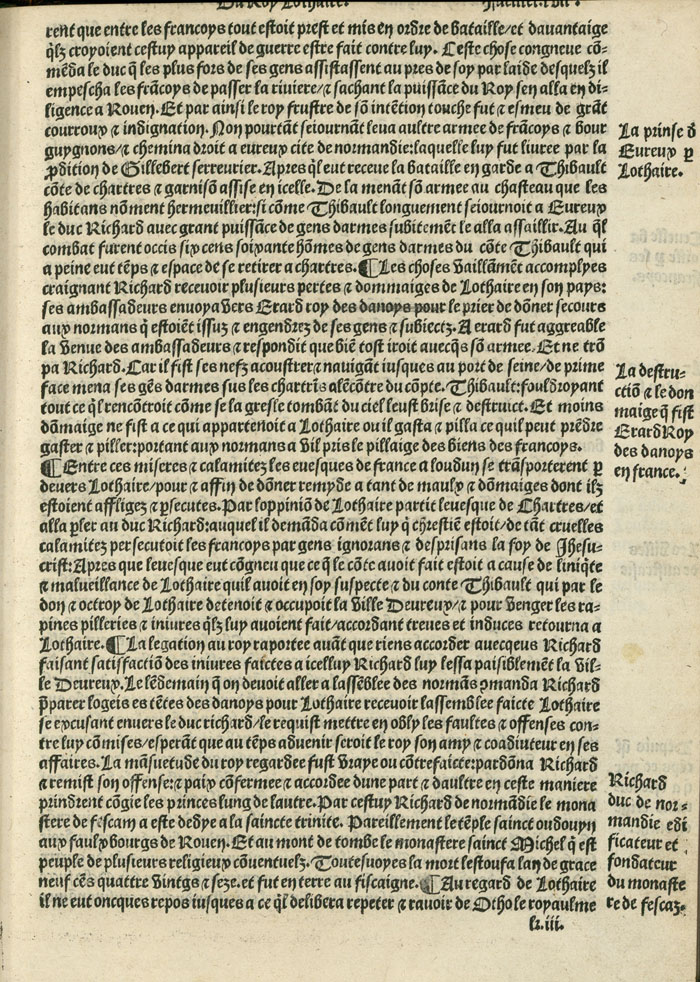 Du Roy Lothaire.
rent que entre les francoys tout estoit prest et mis en ordre de bataille/et dauantaige
qlz croyoient cestuy appareil de guerre estre fait contre luy. Ceste chose congneue cō-
mēda le duc q̄ les plus fors de ses gens assistassent au pres de soy par laide desquelz il
empescha les frācoys de passer la riuiere/⁊ sachant la puissāce du Roy sen alla en di-
ligence a Rouen. Et par ainsi le roy frustre de sō intētion touche fut ⁊ esmeu de grāt
courroux ⁊ indignation. Non pourtāt seiournāt leua aultre armee de frācoys ⁊ bour
guygnons/⁊ chemina droit a eureux cite de normandie:laquelle luy fut liuree par la
ꝑdition de Gillebert serreurier. Apres ql eut receue la bataille en garde a Thibault
cōte de chartres ⁊ garnisō assise en icelle. De la menāt sō armee au chasteau que les
habitans nōment hermeuillier:si cōme Thibault longuement seiournoit a Eureux
le duc Richard auec grant puissāce de gens darmes subitemēt le alla assaillir. Au ql
combat furent occis six cens soixante hōmes de gens darmes du cōte Thibault qui
a peine eut tēps ⁊ espace de se retirer a chartres. ¶ Les choses vaillāmēt accomplyes
craignant Richard receuoir plusieurs pertes ⁊ dommaiges de Lothaire en son pays:
ses ambassadeurs enuoya vers Erard roy des danoys pour le prier de dōner secours
aux normans q̄ estoiēt issuz ⁊ engendrez de ses gens ⁊ subiectz. A erard fut aggreable
la venue des ambassadeurs ⁊ respondit que biē tost iroit auecq̄s sō armee. Et ne trō
pa Richard. Car il fist ses nefz acoustrer ⁊ nauigāt iusques au port de seine/de prime
face mena ses gēs darmes sus les chartrīs alēcōtre du cōpte. Thibault:fouldroyant
tout ce ql rencōtroit cōme se la gresle tombāt du ciel leust brise ⁊ destruict. Et moins
dōmaige ne fist a ce qui appartenoit a Lothaire ou il gasta ⁊ pilla ce quil peut prēdre
gaster ⁊ piller:portant aux normans a vil pris le pillaige des biens des francoys.
¶ Entre ces miseres ⁊ calamitez les euesques de france a loudun se trāsporterent ꝑ
deuers Lothaire/pour ⁊ affin de dōner remyde a tant de maulx ⁊ dōmaiges dont ilz
estoient affligez ⁊ ꝑsecutes. Par loppiniō de Lothaire partit leuesque de Chartres/et
alla ꝑler au duc Richard:auquel il demāda cōmēt luy q̄ chrestiē estoit/de tāt cruelles
calamitez persecutoit les francoys par gens ignorans ⁊ desprisans la foy de Jhesu-
crist:Apres que leuesque eut cōgneu que ce q̄ le cōte auoit fait estoit a cause de liniq̄te
⁊ malueillance de Lothaire quil auoit en soy suspecte ⁊ du conte Thibault qui par le
don ⁊ octroy de Lothaire detenoit ⁊ occupoit la ville Deureux/⁊ pour venger les ra-
pines pilleries ⁊ iniures qlz luy auoient fait/accordant treues et induces retourna a
Lothaire. ¶ La legation au roy raportee auāt que riens accorder auecqeus Richard
faisant satisfactiō des iniures faictes a icelluy Richard luy lessa paisiblemēt la vil-
le Deureux. Le lēdemain q̄ on deuoit aller a lassēblee des normās ꝯmanda Richard
p̄parer logeis es tētes des danoys pour Lothaire receuoir lassemblee faicte Lothaire
se excusant enuers le duc richard/le requist mettre en obly les faultes ⁊ offenses con-
tre luy cōmises/esperāt que au tēps aduenir seroit le roy son amy ⁊ coadiuteur en ses
affaires. La māsuetude du roy regardee fust vraye ou cōtrefaicte:pardōna Richard
⁊ remist son offense:⁊ paix cōfermee ⁊ accordee dune part ⁊ daultre en ceste maniere
prindrent cōgie les princes lung de lautre. Par cestuy Richard de normādie le mona
stere de fescam a este dedye a la saincte trinite. Pareillement le tēple sainct oudouyn
aux faulxbourgs de Rouen. Et au mont de tombe le monastere sainct Michel q̄ est
peuple de plusieurs religieux cōuentuelz. Toutesuoyes la mort lestoufa lan de grace
neuf cēs quattre vintgs ⁊ seze. et fut en terre au fiscaigne. ¶ Au regard de Lothaire
il ne eut oncques repos iusques a ce ql delibera repeter ⁊ rauoir de Otho le royaulme
La prinse d̄
Eureux ꝑ
Lothaire.
La destru-
ctiō ⁊ le dom
maige q̄ fist
Erard Roy
des danoys
en france.
Richard
duc de nor-
mandie edi
ficateur et
fondateur
du monaste
re de fescaz.